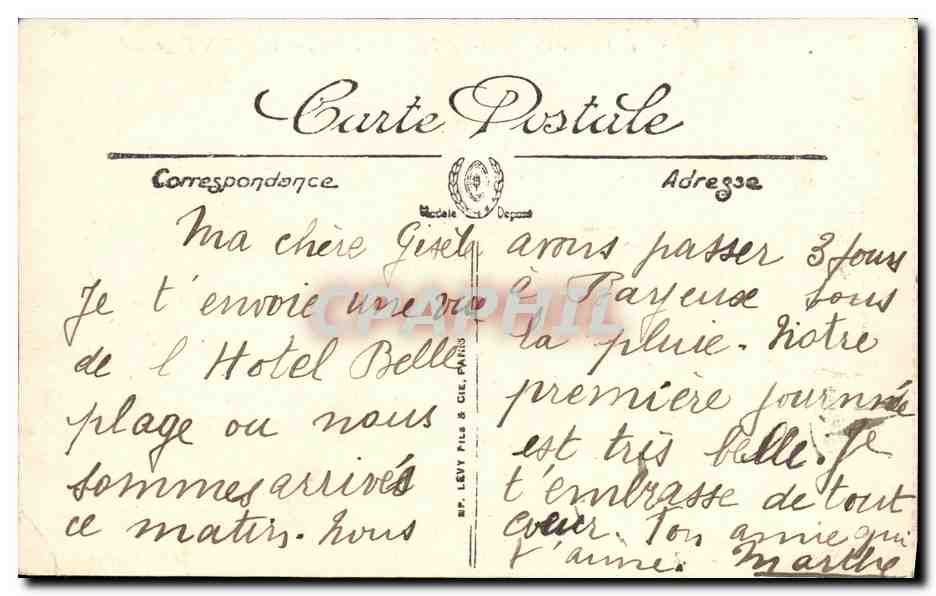 Carte Postale
Correspondance
Adresse
Modèle Déposé
Ma chère Gisèle
Je t'envoie une vue
de l'Hotel Belle
plage ou nous
sommes arrivés
ce matin. Nous
avons passer 3 jours
à Bayeux sous
la pluie. Notre
première journée
est très belle. Je
t'embrasse de tout
cœur. Ton amie qui
t'aime. Marthe
MP. LEVY FILS & CIE, PARIS
CPAPHIL